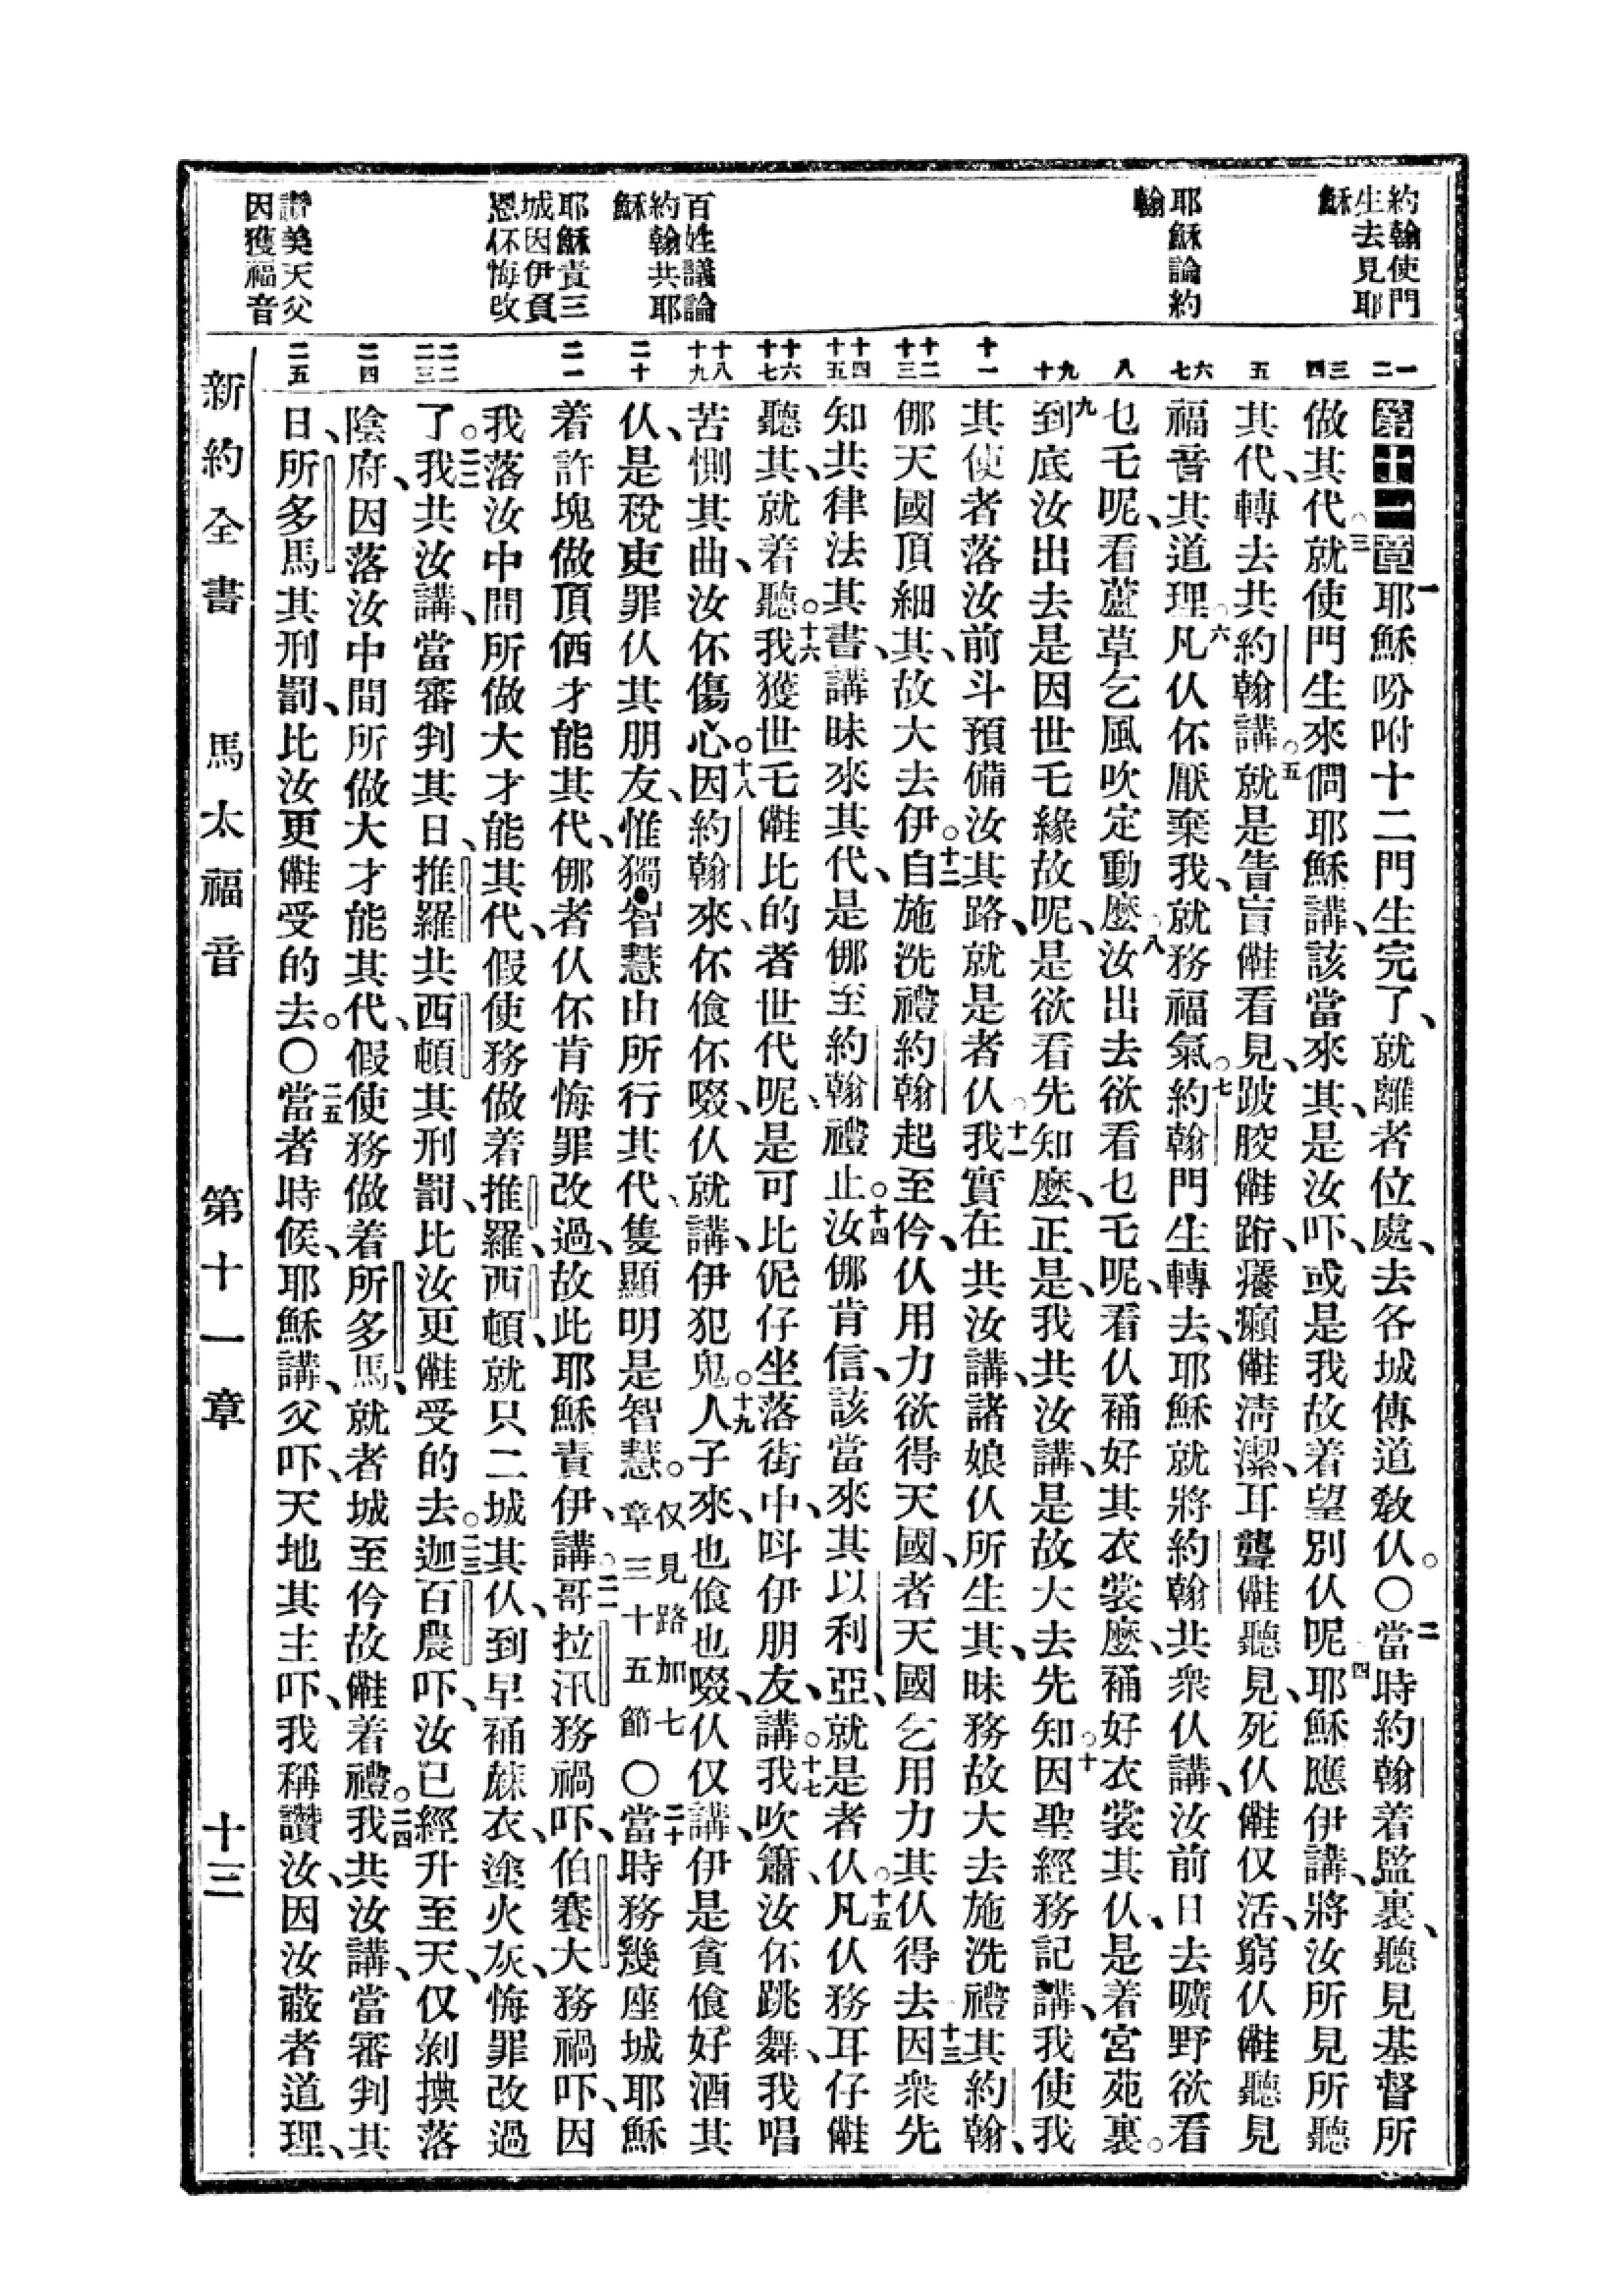 約翰使門
生去見耶
穌
耶穌論約
翰
百姓議論
約翰共耶
穌
耶穌責三
城因伊負
恩伓悔改
讚美天父
因獲福音
一
二
三
四
五
六
七
八
九
十
十一
十二
十三
十四
十五
十六
十七
十八
十九
二十
二一
二二
二三
二四
二五
第十一章一耶穌吩咐十二門生完了、就離者位處、去各城傳道敎仈。〇二當時約翰着監裏、聽見基督所
做其代、就使門生來問耶穌講、三該當來其、是汝吓、或是我故着望別仈呢、四耶穌應伊講、將汝所見所聽
其代、轉去共約翰講。五就是告盲𠆧看見、跛腔𠆧跔、癢癩𠆧淸潔、耳聾𠆧聽見、死仈𠆧仅活、窮仈𠆧聽見
福音其道理。六凡仈伓厭棄我、就務福氣。七約翰門生轉去、耶穌就將約翰共衆仈講、汝前日去曠野欲看
乜乇呢、看蘆草乞風吹定動麼、八汝出去欲看乜乇呢、看仈䙡好其衣裳麼、䙡好衣裳其仈、是着宮苑裏。
九到底汝出去是因世乇緣故呢、是欲看先知麼、正是、我共汝講、是故大去先知、十因聖經務記講、我使我
其使者落汝前斗預備汝其路、就是者仈。十一我實在共汝講、諸娘仈所生其、昧務故大去施洗禮其約翰、
𠋥天國頂細其、故大去伊。十二自施洗禮約翰起至仱、仈用力欲得天國、者天國乞用力其仈得去、十三因衆先
知共律法其書、講昧來其代、是𠋥至約翰禮止。十四汝𠋥肯信、該當來其以利亞、就是者仈。十五凡仈務耳仔𠆧
聽其、就着聽。十六我獲世乇𠆧比的者世代呢、是可比伲仔坐落街中、叫伊朋友、講。十七我吹簫、汝伓跳舞、我唱
苦惻其曲、汝伓傷心。十八因約翰來、伓飡伓啜、仈就講、伊犯鬼。十九人子來、也飡也啜、仈仅講、伊是貪飡好酒其
仈、是稅吏罪仈其朋友、惟獨智慧由所行其代、隻顯明是智慧。仅見路加七章三十五節〇二十當時務幾座城耶穌
着許塊做頂𠊱才能其代、𠋥者仈伓肯悔罪改過、故此耶穌責伊、講。二一哥拉汛務禍吓、伯賽大務禍吓、因
我落汝中間所做大才能其代、假使務做着推羅、西頓、就只二城其仈、到早䙡蔴衣、塗火灰、悔罪改過
了。二二我共汝講、當審判其日、推羅共西頓其刑罰、比汝更𠆧受的去。二三迦百農吓、汝已經升至天、仅剝㨪落
陰府、因落汝中間所做大才能其代、假使務做着所多馬、就者城至仱故𠆧着禮。二四我共汝講、當審判其
日、所多馬其刑罰、比汝更𠆧受的去。〇二五當者時候、耶穌講、父吓、天地其主吓、我稱讚汝、因汝蔽者道理、
新約全書 馬太福音 第十一章 十三